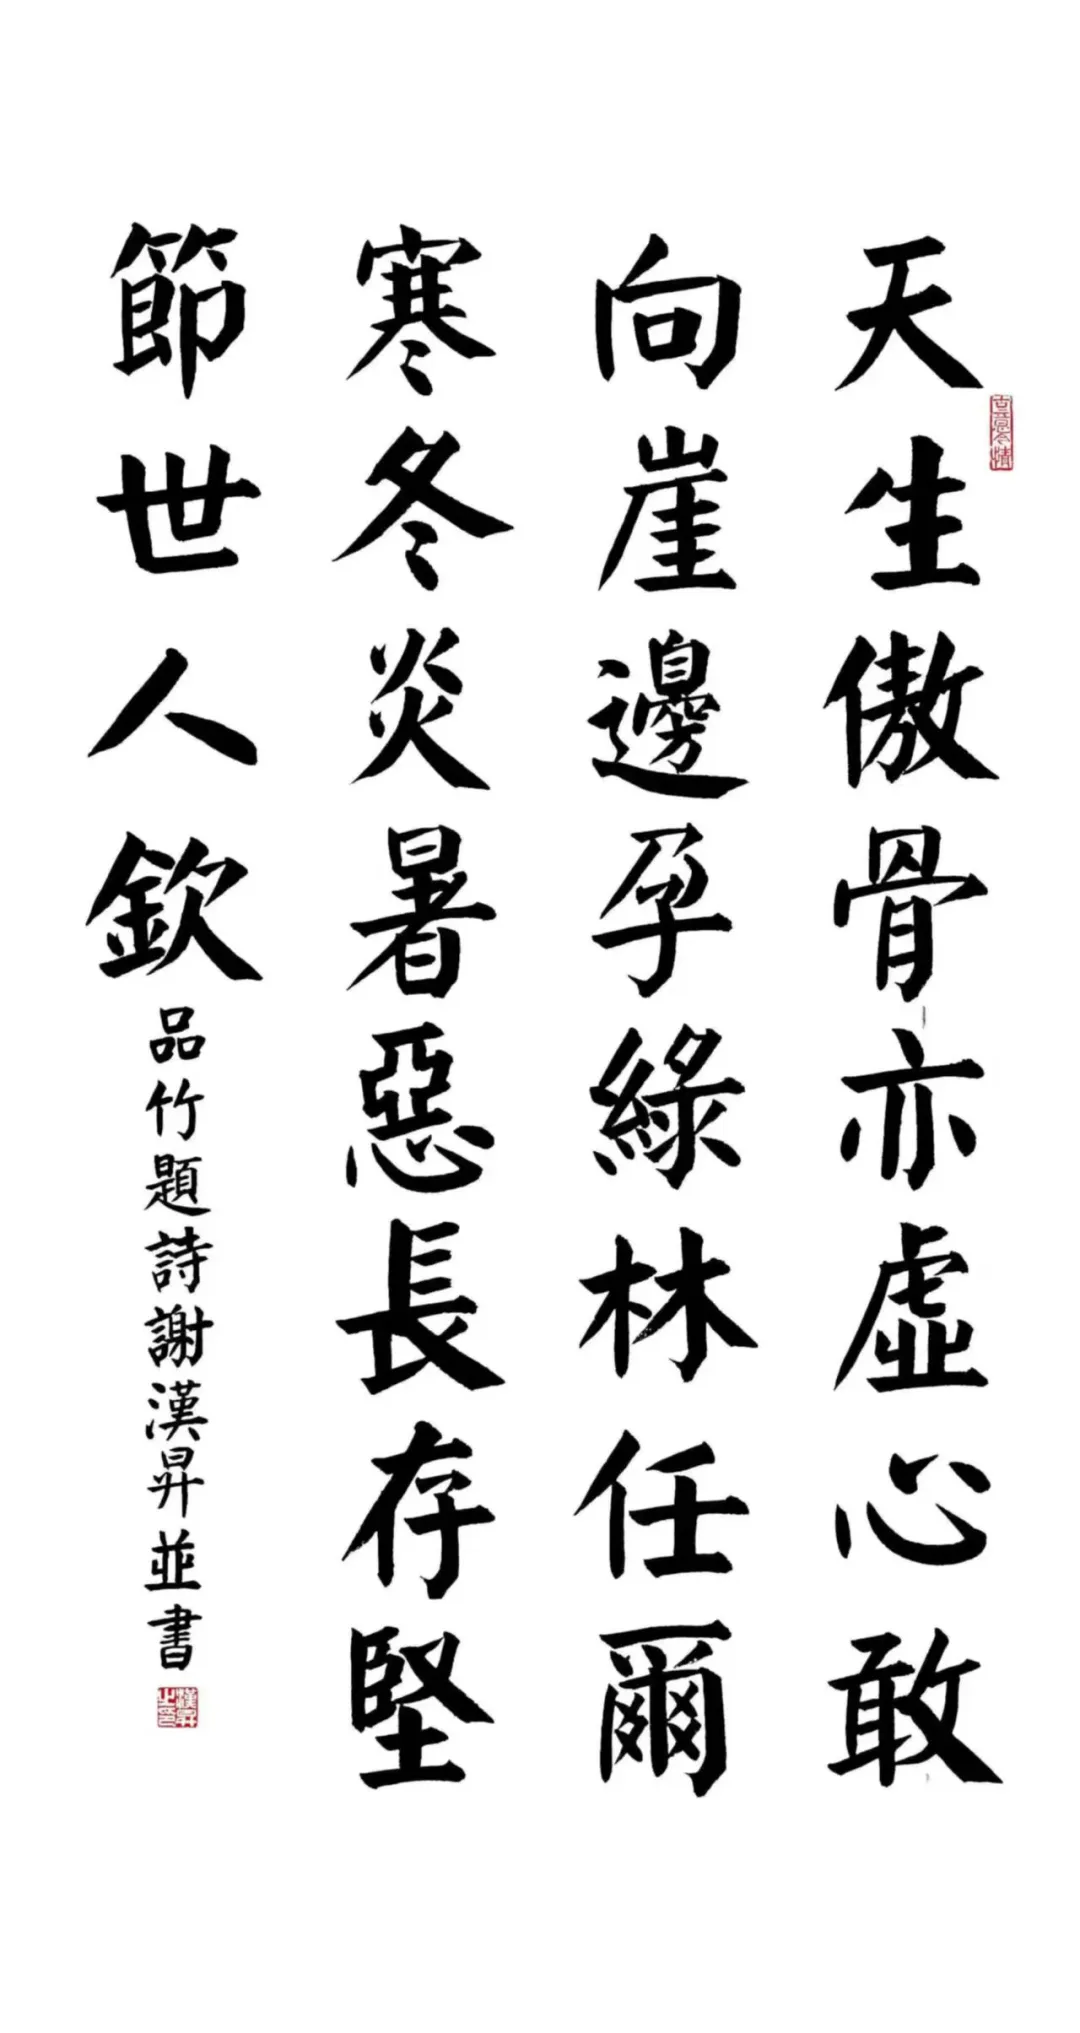 天生傲骨亦虛心敢
向崖邊孕綠林任爾
寒冬炎暑惡長存堅
節世人欽
品竹題詩謝漢昇並書
古意今情
漢昇之印